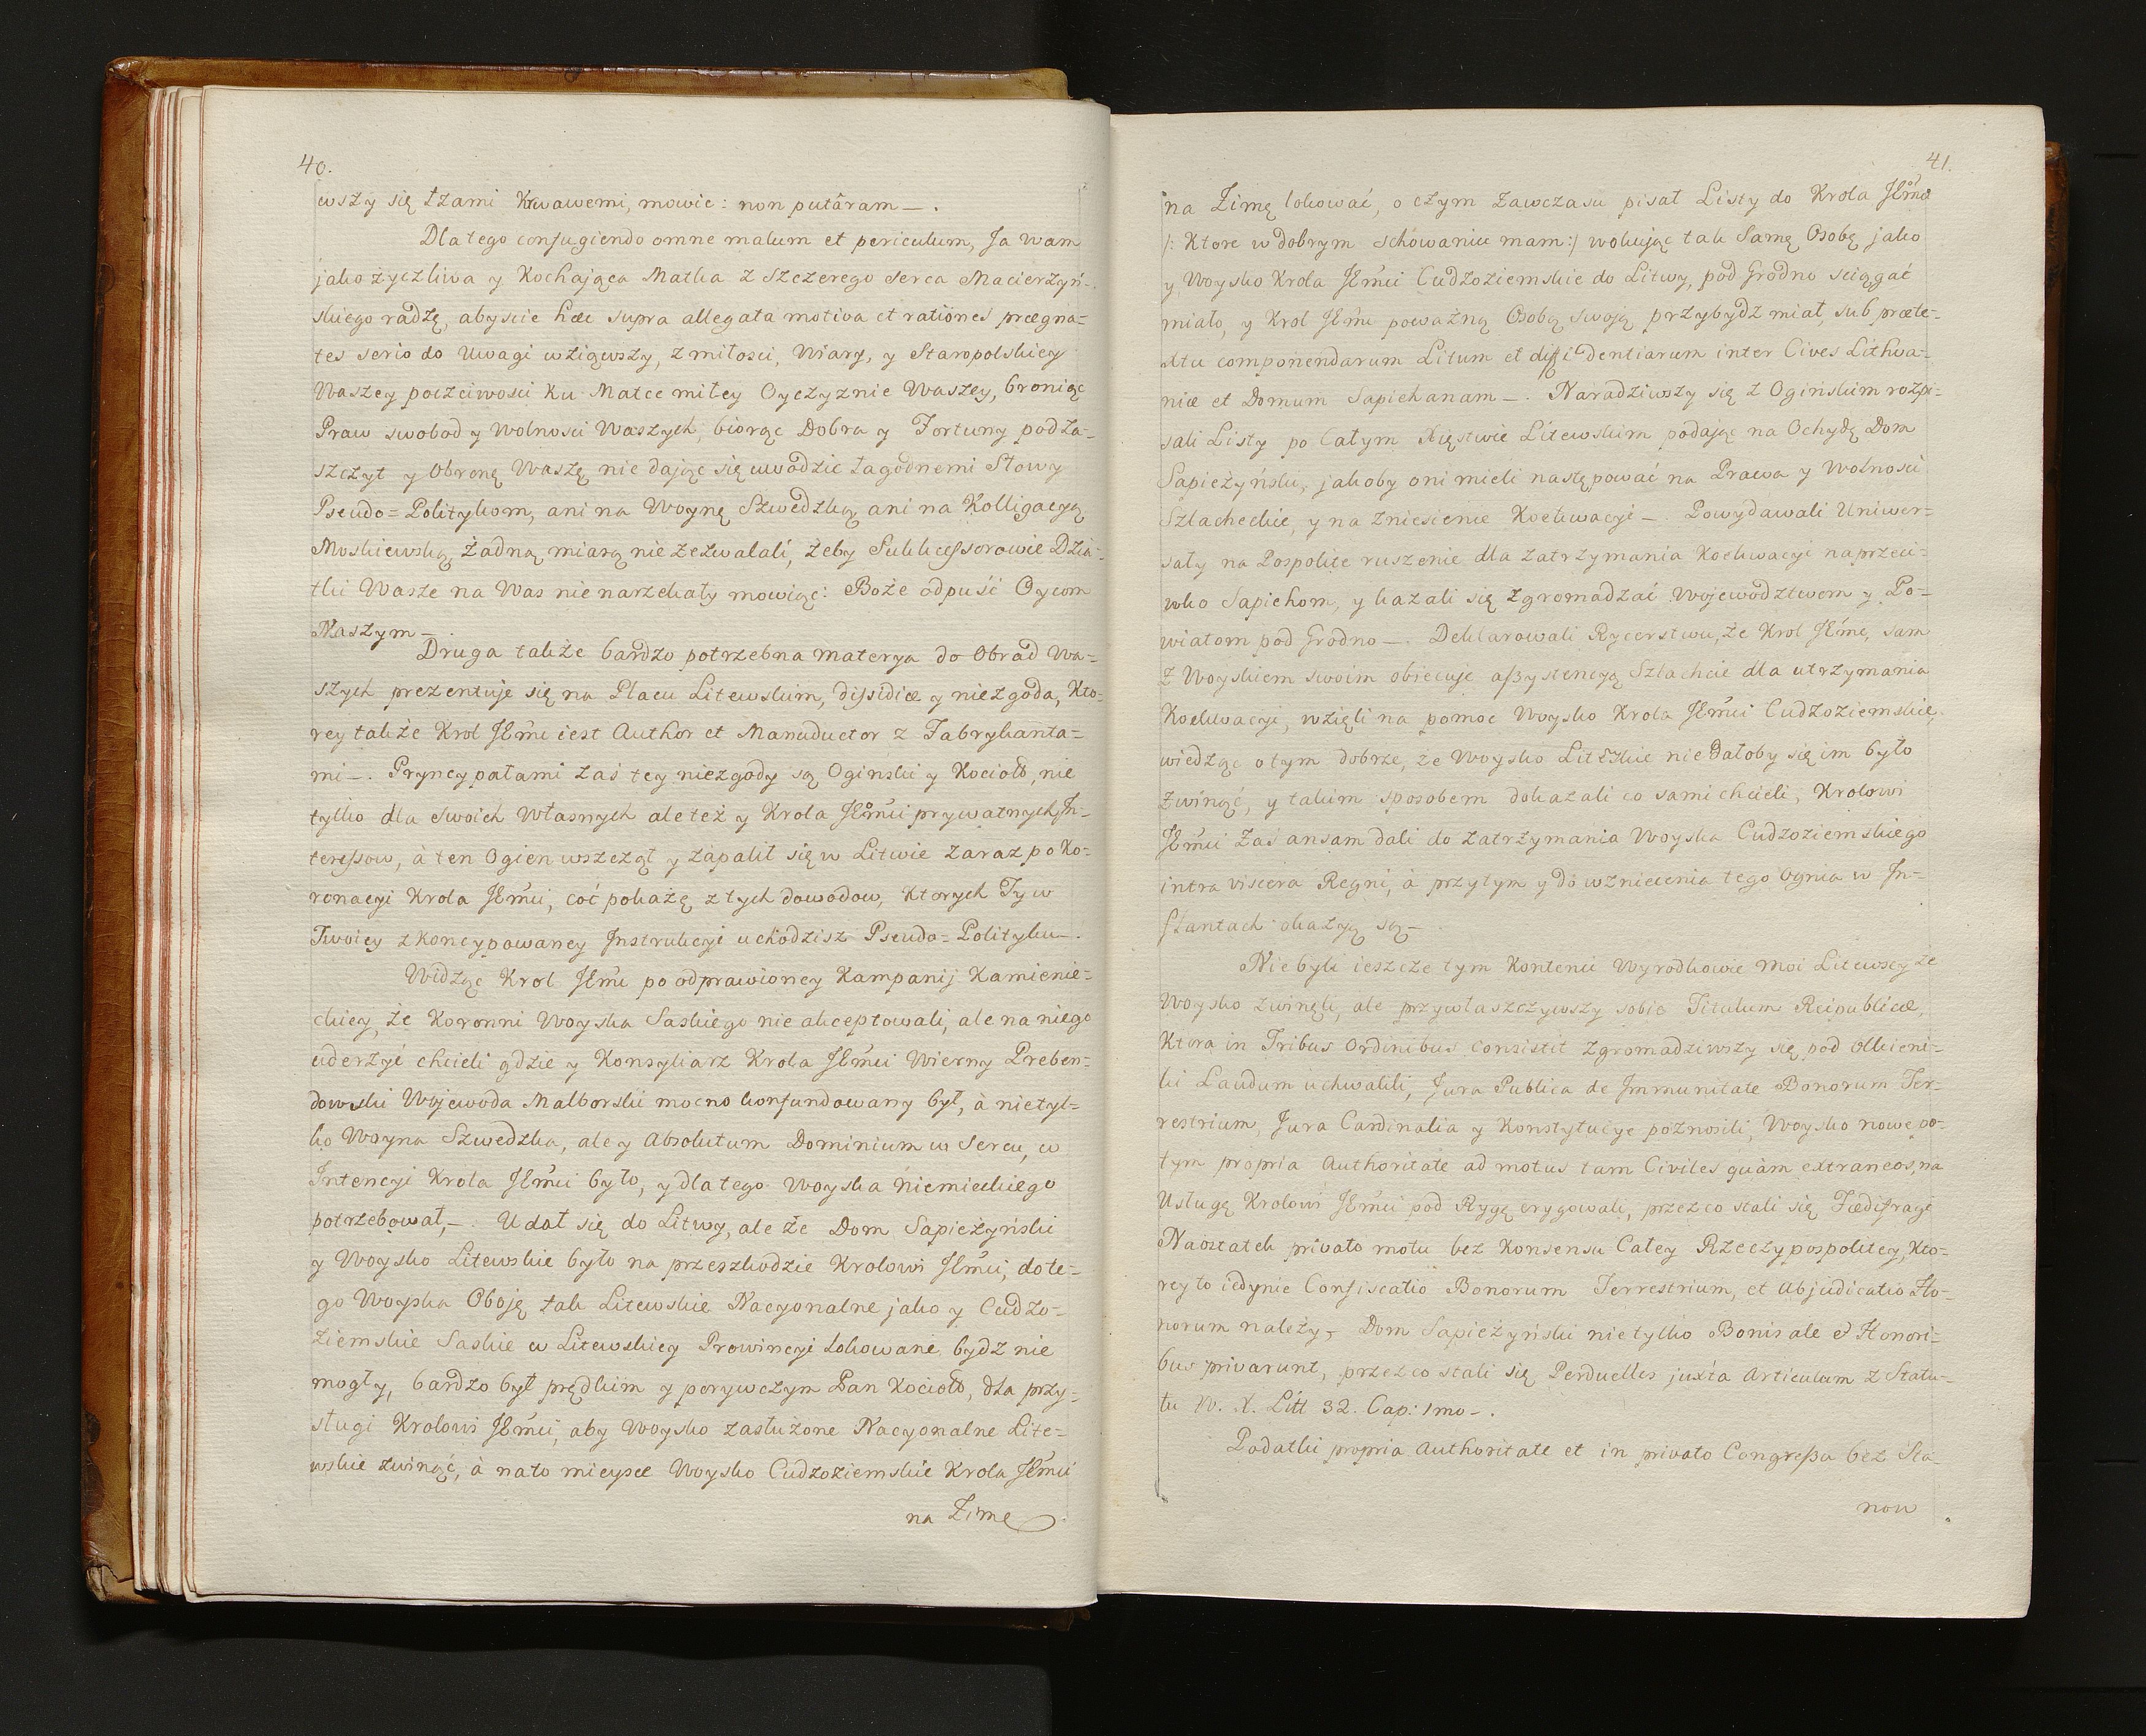 40.
wszy się łzami Krwawemi, mowic: non putâram —.
Dla tego confugiendo omne malum et periculum, Ja Wam
jako życzliwa y Kochająca Matka z szczerego serca Macierzyń-
skiego radzę, abyscie hæc supra allegata motiva et rationes prægna=
tes serio do Uwagi wziąwszy, z miłosci, Wiary, y Staropolskiey
Waszey poczciwosci ku Matce miłey Oyczyznie Waszey, broniąc
Praw swobod y Wolnosci Waszych, biorąc Dobra y Fortuny pod za-
szczyt y Obronę Waszę nie dając się uwodzic łagodnemi Słowy
Pseudo=Politykom, ani na Woynę Szwedzką ani na Kolligacyą
Moskiewską, żadną miarą nie zezwalali, żeby Sukkcessorowie Dzia-
tki Wasze na Was nie narzekały mowiąc: Boże odpuść Oycom
Naszym —.
Druga także bardzo potrzebna materya do Obrad Wa=
szych prezentuje się na Placu Litewskim, dissidiæ y niezgoda, Kto-
rey także Krol JEmć iest Author et Manuductor z Fabrykanta=
mi —. Pryncypałami zaś tey niezgody są Oginski y Kociołł, nie
tylko dla swoich własnych ale też y Krola JEmći prywatnych In-
teressow, à ten Ogien wszczął y zapalił się w Litwie zaraz po Ko-
ronacyi Krola JEmći, coć pokażę z tych dowodow, Ktorych Ty w
Twoiey zkoncypowaney Instrukcyi uchodzisz Pseudo=Polityku —.
Widząc Krol JEmć po odprawioney Kampanij Kamienie=
ckiey, że Koronni Woyska Saskiego nie akceptowali, ale na niego
uderzyć chcieli gdzie y Konsyliarz Krola JEmći Wierny Preben=
dowski Wojewoda Malborski mocno konfundowany był, à nietyl=
ko Woyna Szwedzka, ale y Absolutum Dominium w Sercu, w
Intencyi Krola JEmći było, y dla tego Woyska niemieckiego
potrzebował, —. Udał się do Litwy, ale że Dom Sapieżyński
y Woysko Litewskie było na przeszkodzie Krolowi JEmći, do te=
go Woyska Oboję tak Litewskie Nacyonalne jako y Cudzo-
ziemskie Saskie w Litewskiey Prowincyi lokowane bydz nie
mogły, bardzo był prędkim y porywczym Pan Kociołł, dla przy-
sługi Krolowi JEmći, aby Woysko zasłużone Nacyonalne Lite=
wskie zwinąć, à na to mieysce Woysko Cudzoziemskie Krola JEmći
na Zimę
41.
na Zimę lokować, o czym zawczasu pisał Listy do Krola JEmći
/: Ktore w dobrym schowaniu mam :/ wokując tak Samę Osobę jako
y Woysko Krola JEmći Cudzoziemskie do Litwy, pod Grodno sciągać
miało, y Krol JEmć poważną Osobą swoją przybydz miał, sub præte-
xtu componendarum Litum et diffidentiarum inter Cives Lithva=
niæ et Domum Sapiehanam —. Naradziwszy się z Oginskim rozpi=
sali Listy po całym Xięstwie Litewskim podając na Ochydę Dom
Sapieżyński, jakoby oni mieli następować na Prawa y Wolnosci
Szlacheckie, y na zniesienie Koekwacyi —. Powydawali Uniwer=
sały na Pospolite ruszenie dla zatrzymania Koekwacyi naprzeci=
wko Sapiehom, y kazali się zgromadzać Wojewodztwom y Po-
wiatom pod Grodno —. Deklarowali Rycerstwu, że Krol JEmć, sam
z Woyskiem swoim obiecuje assystencyą Szlachcie dla utrzymania
Koekwacyi, wzięli na pomoc Woysko Krola JEmći Cudzoziemskie,
wiedząc o tym dobrze, że Woysko Litzkie nie dałoby się im było
zwinąć, y takim sposobem dokazali co sami chcieli, Krolowi
JEmći zaś ansam dali do zatrzymania Woyska Cudzoziemskiego
intra viscera Regni, à przytym y do wzniecenia tego Ognia w In-
flantach okazyą są —
Nie byli ieszcze tym Kontenci Wyrodkowie moi Litewscy że
Woysko zwinęli, ale przywłaszczywszy sobie Titulum Reipublicæ,
Ktora in Tribus Ordinibus consistit zgromadziwszy się pod Olkieni-
ki Laudum uchwalili, Jura Publica de Immunitate Bonorum Ter-
restrium, Jura Cardinalia y Konstytucye poznosili, Woysko nowe po-
tym propria Authoritate ad motus tam Civiles quàm extraneos, na
Usługę Krolowi JEmći pod Rygę erygowali, przez co stali się Fœdifragi
Naostatek privato motu bez Konsensu Całey Rzeczypospolitey, Kto-
rey to iedynie Confiscatio Bonorum Terrestrium, et Abjudicatio Ho-
norum należy, — Dom Sapieżyński nie tylko Bonis ale et Honori-
bus privarunt, przez co stali się Perduelles juxta Articulum z Statu-
tu W. X. Litt 32. Cap: 1mo —.
Podatki propria Authoritate et in privato Congressu bez Sta-
now